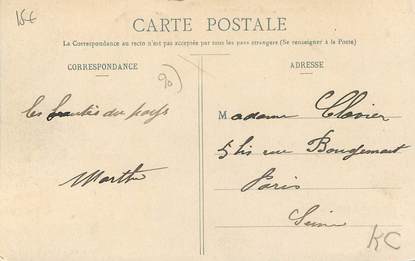 15€
CARTE POSTALE
La Correspondance au recto n'est pas acceptée par tous les pays étrangers (Se renseigner à la Poste)
CORRESPONDANCE
ADRESSE
90
les beautés du pays
Marthe
Madame Clavier
5 bis rue Bougemart
Paris
Seine
KC